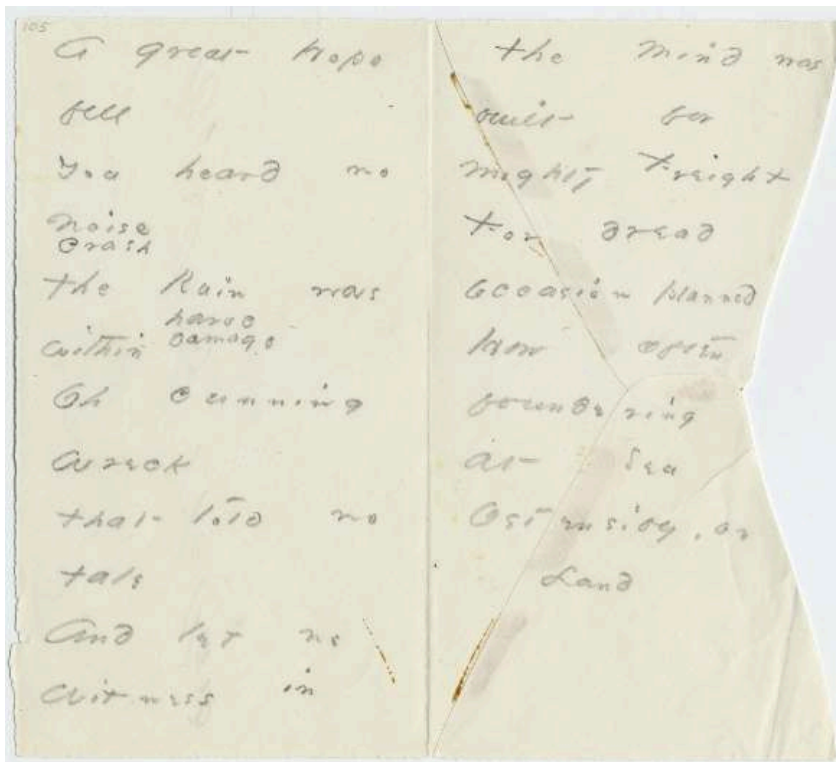 105
A great Hope
fell
You heard no
noise
crash
the Ruin was
havoc
within damage
Oh cunning
Wreck
that told no
tale
And let no
Witness in
the Mind was
built for
mighty Freight
For dread
occasion planned
How often
foundering
at Sea
Ostensibly, on
Land